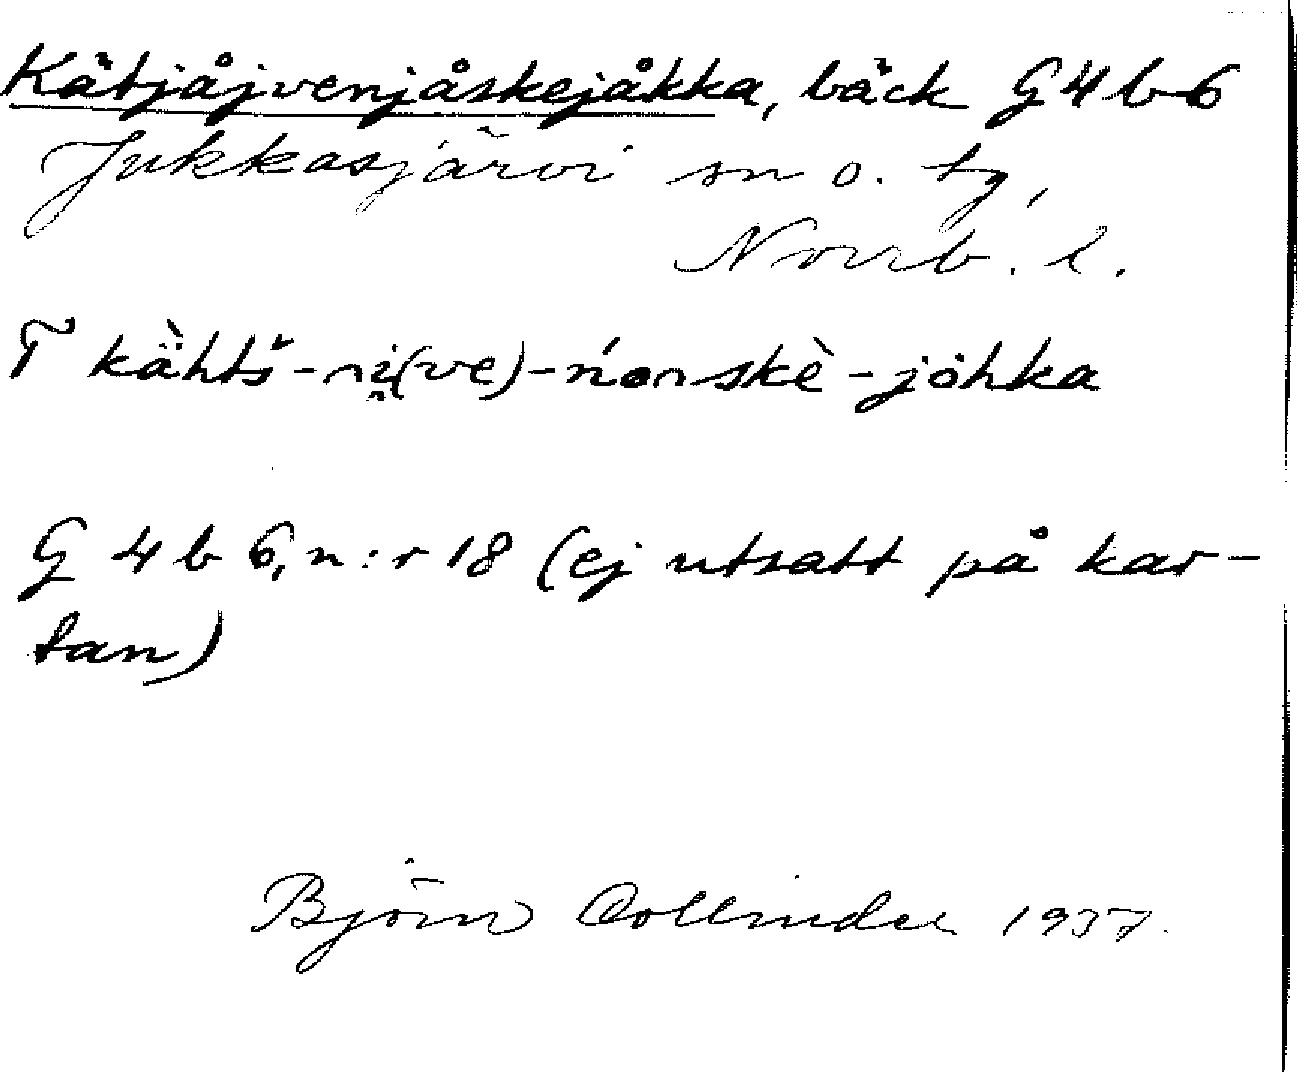 Kätjåjvenjåskejåkka, bäck G4b6
Jukkasjärvi sn o. tg,
Norrb. l.
G 4 b 6, n:r 18 (ej utsatt på kar-
tan)
Björn Collinder 1937.